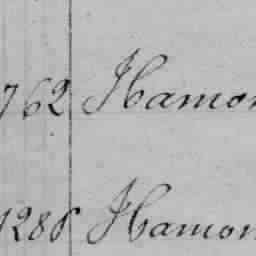 762 Hamon
1286 Hamon